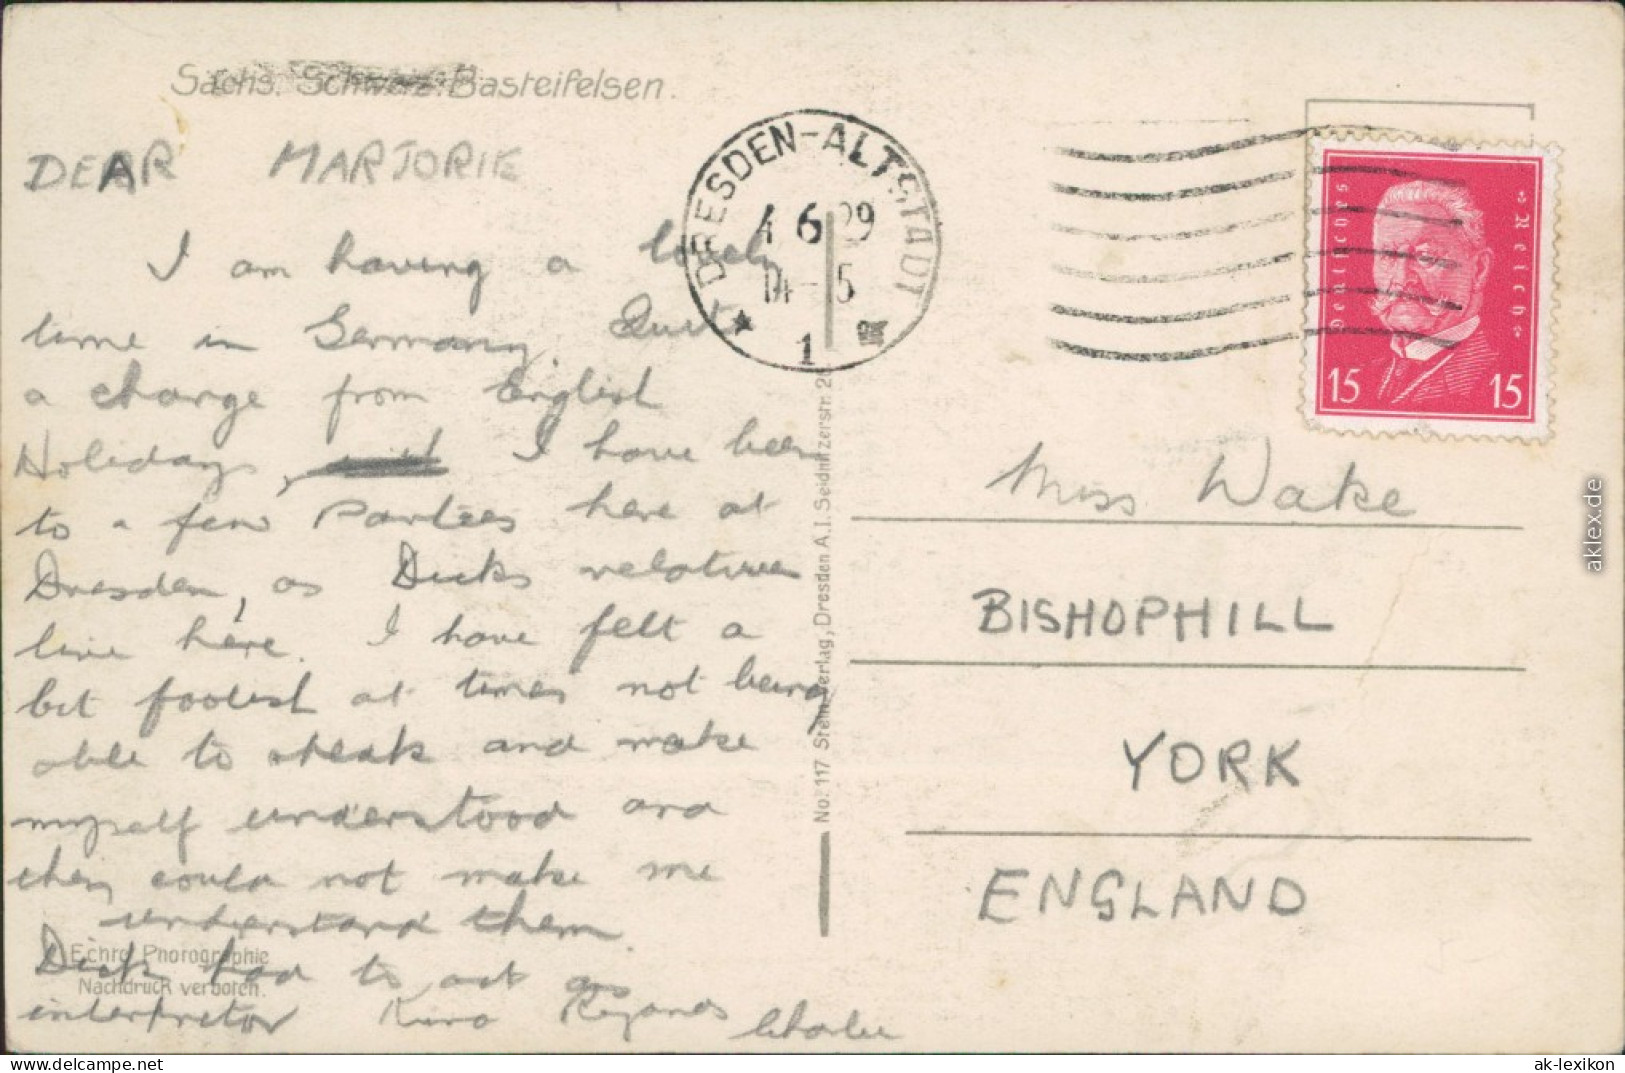 Sächs. Schweiz: Basteifelsen.
DEAR MARJORIE
I am having a lovely
time in Germany. Quite
a change from English
Holidays, I have been
to a few Parties here at
Dresden, as Dicks relatives
live here. I have felt a
bit foolish at times not being
able to speak and make
myself understood and
they could not make me
understand them.
Dick had to act as
interpretor Kind Regards Charlie
Echte Photographie
Nachdruck verboten.
No. 117 Stein-Verlag, Dresden A.I. Seidnitzerstr. 2
DRESDEN-ALTSTADT
4 6 29
14-15
1
Deutsches Reich
15 15
Miss Wake
BISHOPHILL
YORK
ENGLAND
aklex.de
the best of the past - oldthing.net
ak-lexikon